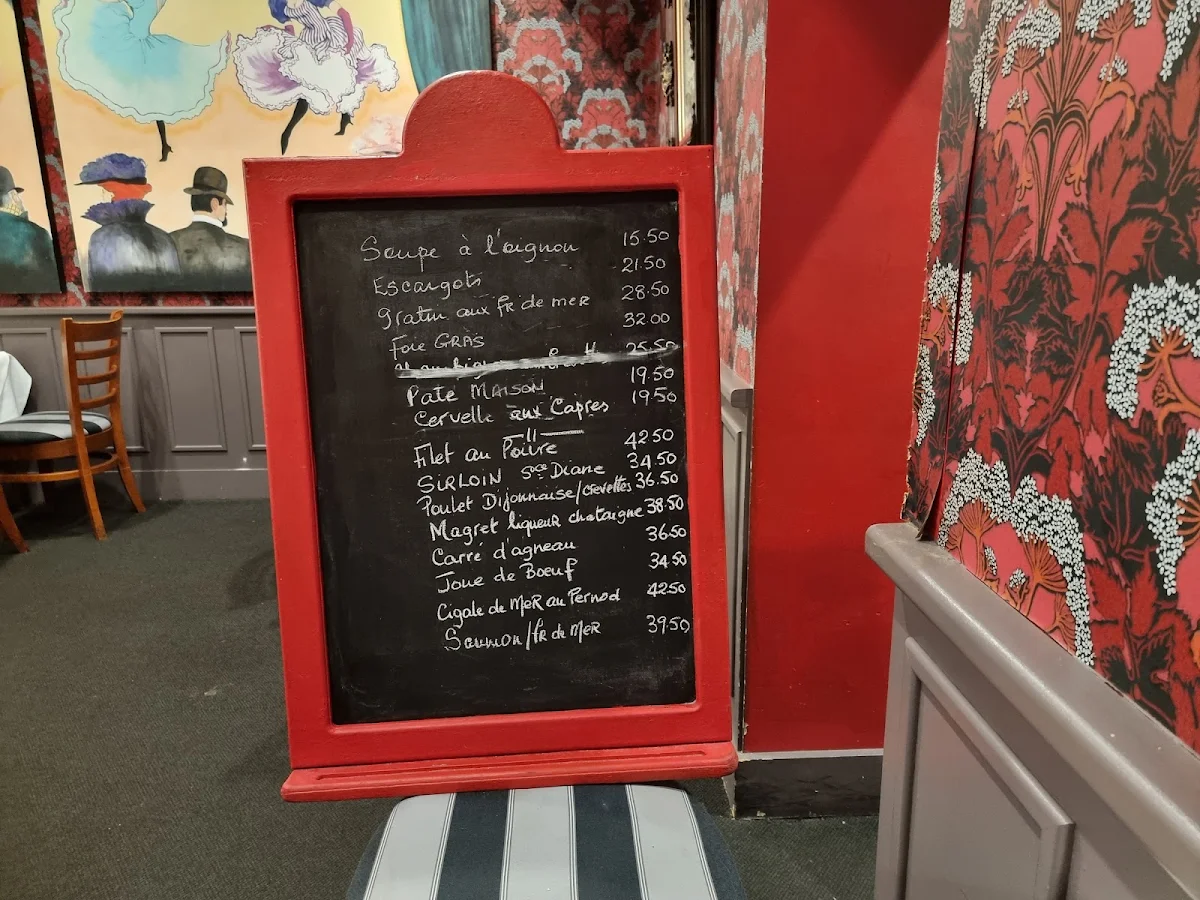 Soupe à l'oignon 15.50
Escargots 21.50
Gratin aux fR de meR 28.50
Foie GRAS 32.00
25.50
Pate MAISON 19.50
Cervelle aux Capres 19.50
—11—
Filet au Poivre 42.50
SiRLOIN sce Diane 34.50
Poulet Dijonnaise/crevettes 36.50
Magret liqueuR chataigne 38.50
Carré d'agneau 36.50
Joue de Boeuf 34.50
Cigale de MeR au Pernod 42.50
Saumon/fR de MeR 39.50